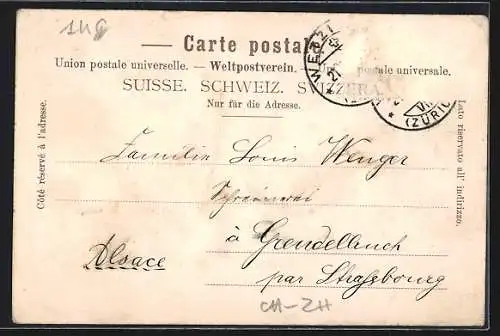 148
— Carte postale
Union postale universelle. — Weltpostverein. — postale universale.
SUISSE. SCHWEIZ. SVIZZERA.
Nur für die Adresse.
Côté réservé à l'adresse.
Lato riservato all' indirizzo.
WETZI
VII
(ZÜRIC
Familie Louis Wenger
Schreinerei
à Grendelbruch
Alsace
par Strassbourg
CH-ZH